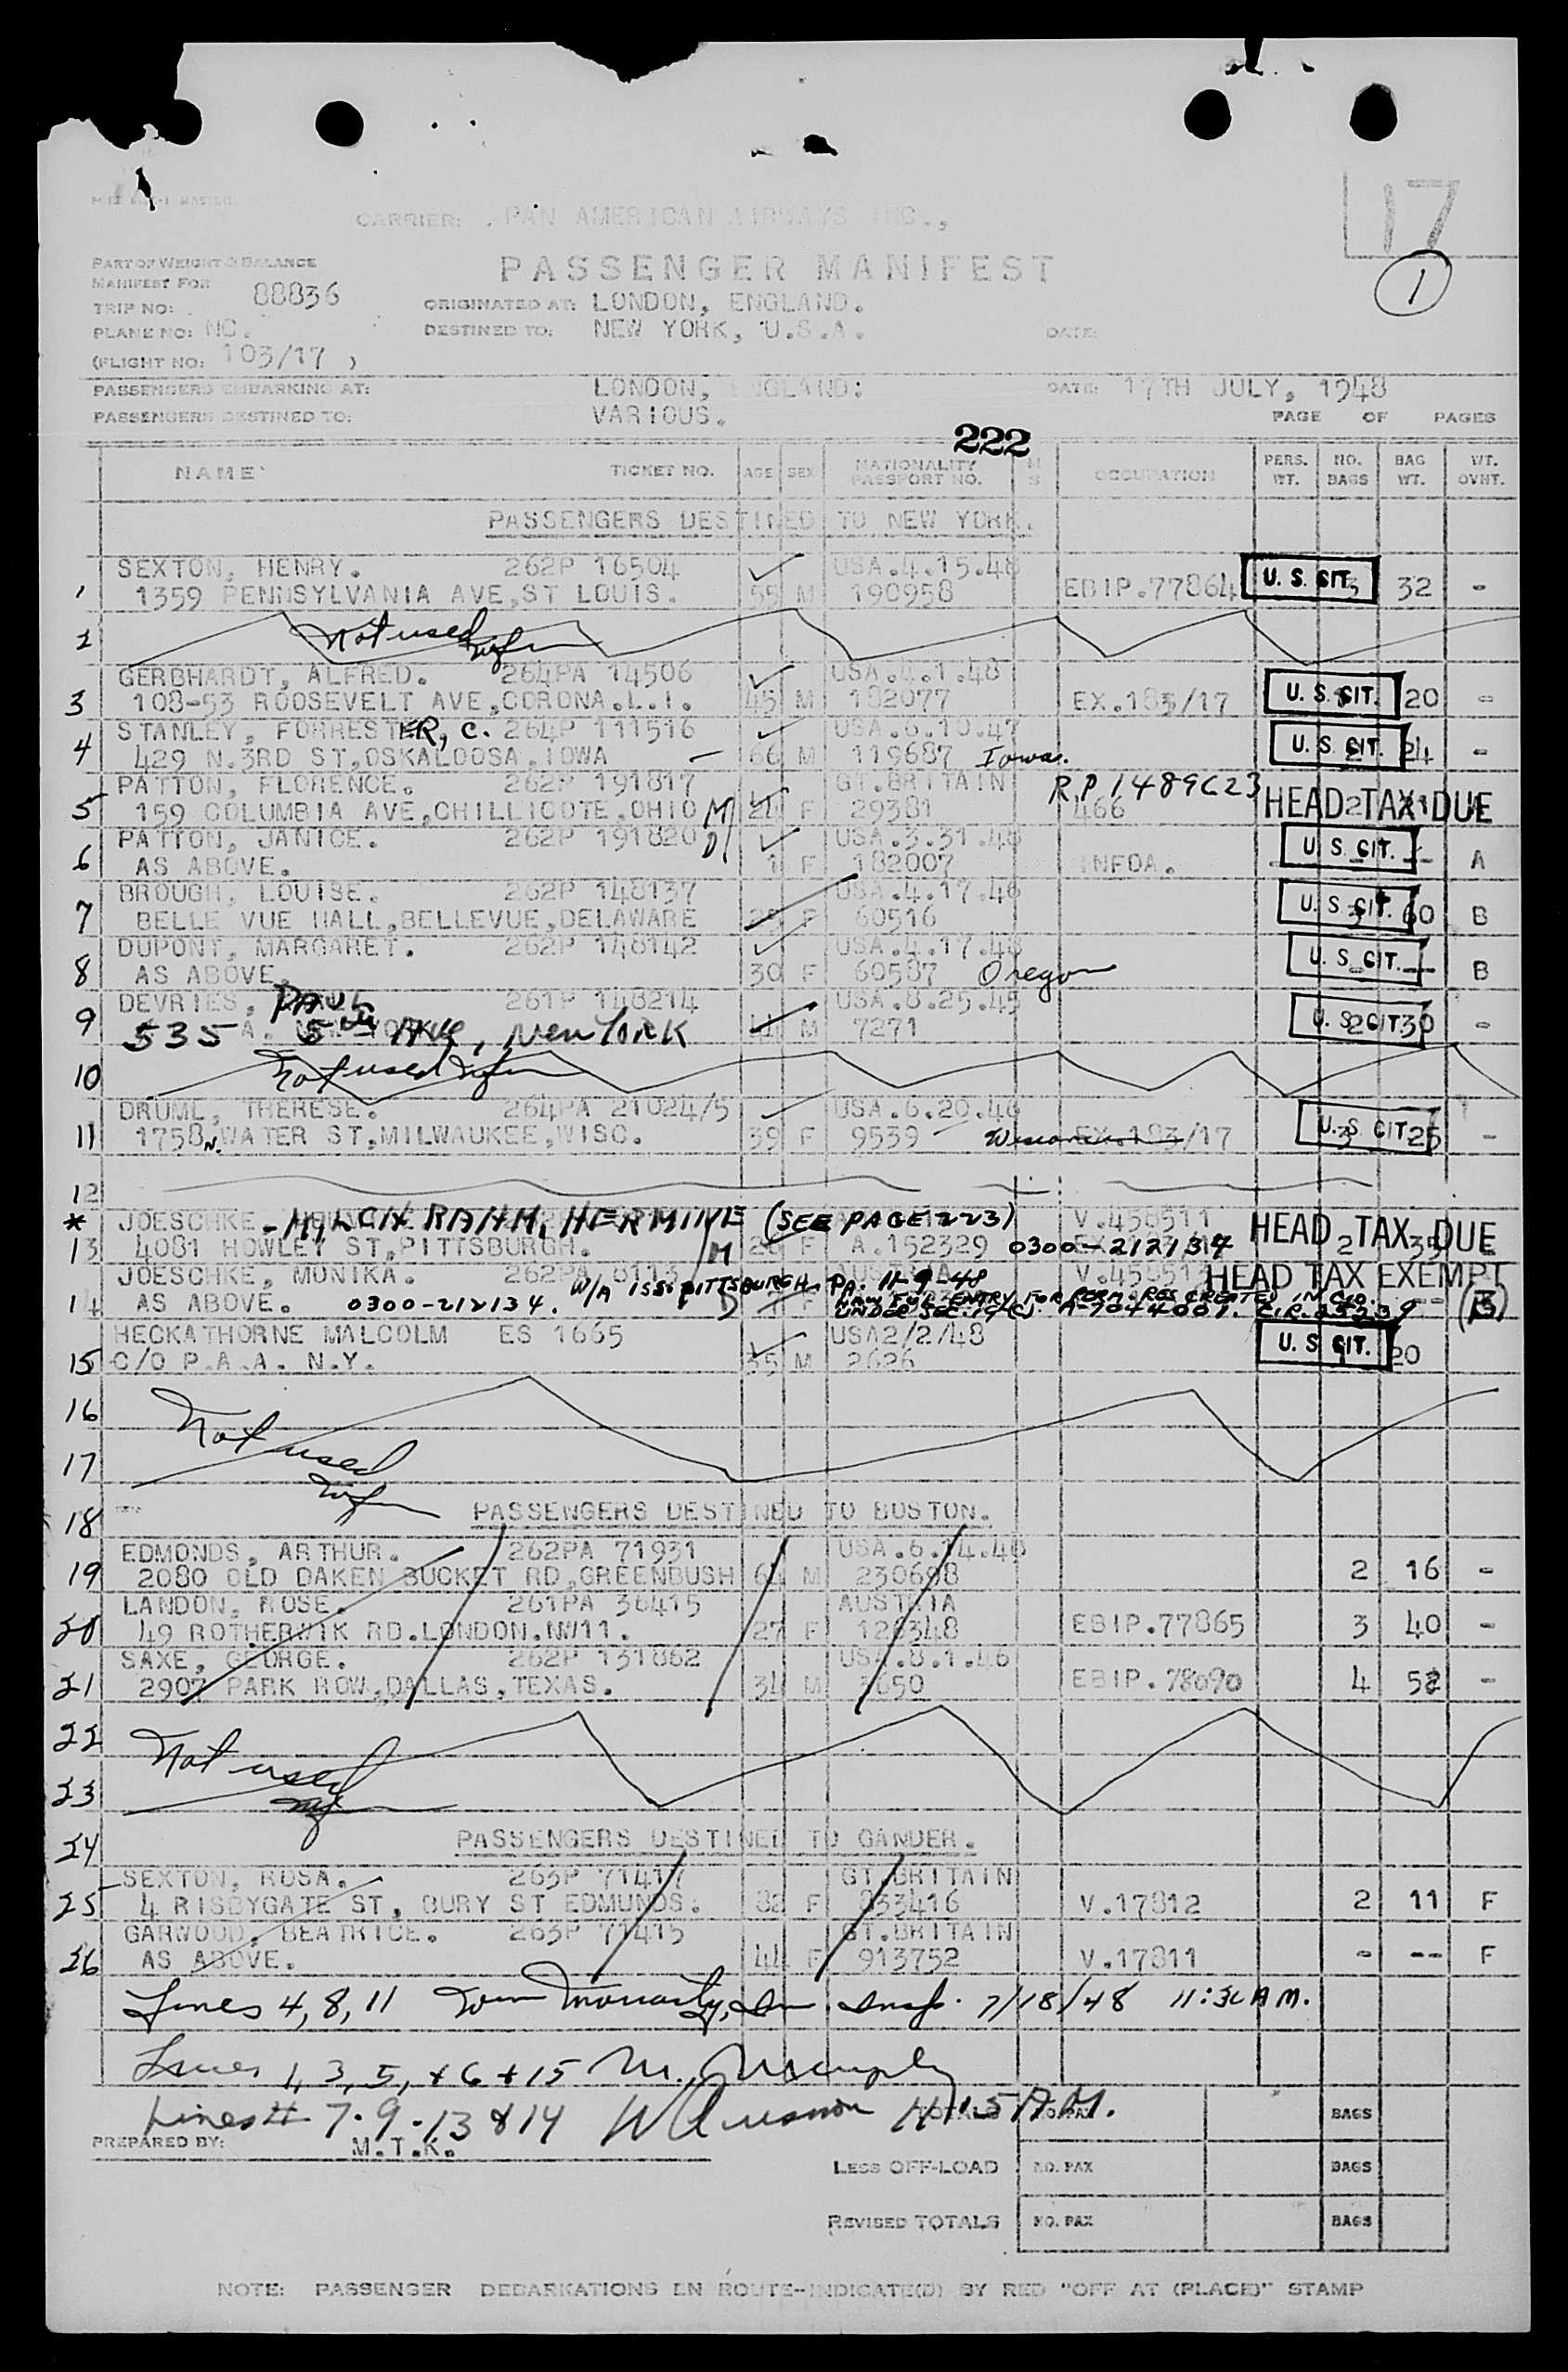 17
CARRIER: PAN AMERICAN AIRWAYS INC.,
1
PASSENGER MANIFEST
PART OF WEIGHT & BALANCE
MANIFEST FOR
TRIP NO: 88836
ORIGINATED AT: LONDON, ENGLAND.
PLANE NO: NC.
DESTINED TO: NEW YORK, U.S.A. DATE:
(FLIGHT NO: 103/17 )
PASSENGERS EMBARKING AT: LONDON, ENGLAND: DATE: 17TH JULY, 1948
PASSENGERS DESTINED TO: VARIOUS. PAGE OF PAGES
222
NAME TICKET NO. AGE SEX NATIONALITY PASSPORT NO. M S OCCUPATION PERS. WT. NO. BAGS BAG WT. WT. OVNT.
PASSENGERS DESTINED TO NEW YORK.
SEXTON, HENRY. 262P 16504 USA.4.15.48
1 1359 PENNSYLVANIA AVE,ST LOUIS. 55 M 190958 EBIP.77864 U. S. CIT. 3 32 -
2 Not used
GERBHARDT, ALFRED. 264PA 14506 USA.4.1.48
3 108-53 ROOSEVELT AVE,CORONA.L.I. 45 M 182077 EX.183/17 U. S. CIT. 20 -
STANLEY, FORRESTER, C. 264P 111516 USA.6.10.47
4 429 N.3RD ST,OSKALOOSA,IOWA - 66 M 119687 Iowa. U. S. CIT. 24 -
PATTON, FLORENCE. 262P 191817 GT.BRITAIN RP 1489623
5 159 COLUMBIA AVE,CHILLICOTE,OHIO M 24 F 29381 466 HEAD TAX DUE 2 21
PATTON, JANICE. 262P 191820 D USA.3.31.48
6 AS ABOVE. 1 F 182007 INFOA. U. S. CIT. -- A
BROUGH, LOUISE. 262P 148137 USA.4.17.46
7 BELLE VUE HALL,BELLEVUE,DELAWARE 25 F 60516 U. S. CIT. 60 B
DUPONT, MARGARET. 262P 148142 USA.4.17.48
8 AS ABOVE. 30 F 60587 Oregon U. S. CIT. -- B
DEVRIES, PAUL 261P 148214 USA.8.25.45
9 535 5th AVE, New YORK 41 M 7271 U. S. CIT. 2 30 -
10 Not used
DRUML, THERESE. 264PA 21024/5 USA.6.20.46
11 1758 N. WATER ST,MILWAUKEE,WISC. 39 F 9539 Wisconsin EX.183/17 U. S. CIT. 3 25 -
12
* JOESCHKE - HERMINE (SEE PAGE 223) V.458511
13 4081 HOWLEY ST,PITTSBURGH. M 26 F A.152329 0300-212134 HEAD TAX DUE 2 35
JOESCHKE, MONIKA. 262PA W/A ISS. PITTSBURGH PA. 11-9-48 HEAD TAX EXEMPT
14 AS ABOVE. 0300-212134. D F LAWFUL ENTRY FOR PERM. RES CREATED IN C.O.
UNDER SEC. 19(C)
HECKATHORNE MALCOLM ES 1665 USA2/2/48
15 C/O P.A.A. N.Y. 35 M 2626 U. S. CIT. 1 20
16 Not used
17
18 PASSENGERS DESTINED TO BOSTON.
EDMONDS, ARTHUR. 262PA 71931 USA.6.14.48
19 2080 OLD OAKEN BUCKET RD,GREENBUSH M 230698 2 16 -
LANDON, ROSE. 261PA 36415 AUSTRIA
20 49 ROTHERWIK RD.LONDON.NW11. 27 F 126348 EBIP.77865 3 40 -
SAXE, GEORGE. 262P 131862 USA.8.1.46
21 2907 PARK ROW,DALLAS,TEXAS. 34 M 3650 EBIP.78090 4 52 -
22 Not used
23
24 PASSENGERS DESTINED TO GANDER.
SEXTON, ROSA. 263P 71417 GT.BRITAIN
25 4 RISBYGATE ST, BURY ST EDMUNDS. 82 F 833416 V.17812 2 11 F
GARWOOD, BEATRICE. 263P 71415 GT.BRITAIN
26 AS ABOVE. 44 F 913752 V.17811 - -- F
Lines 4, 8, 11 Insp. 7/18/48 11:30 AM.
Lines 1, 3, 5, + 6 + 15
Lines # 7-9-13 & 14 1115 AM.
TOTALS NO. PAX BAGS
PREPARED BY: M.T.K.
LESS OFF-LOAD NO. PAX BAGS
REVISED TOTALS NO. PAX BAGS
NOTE: PASSENGER DEBARKATIONS EN ROUTE--INDICATE(D) BY RED "OFF AT (PLACE)" STAMP